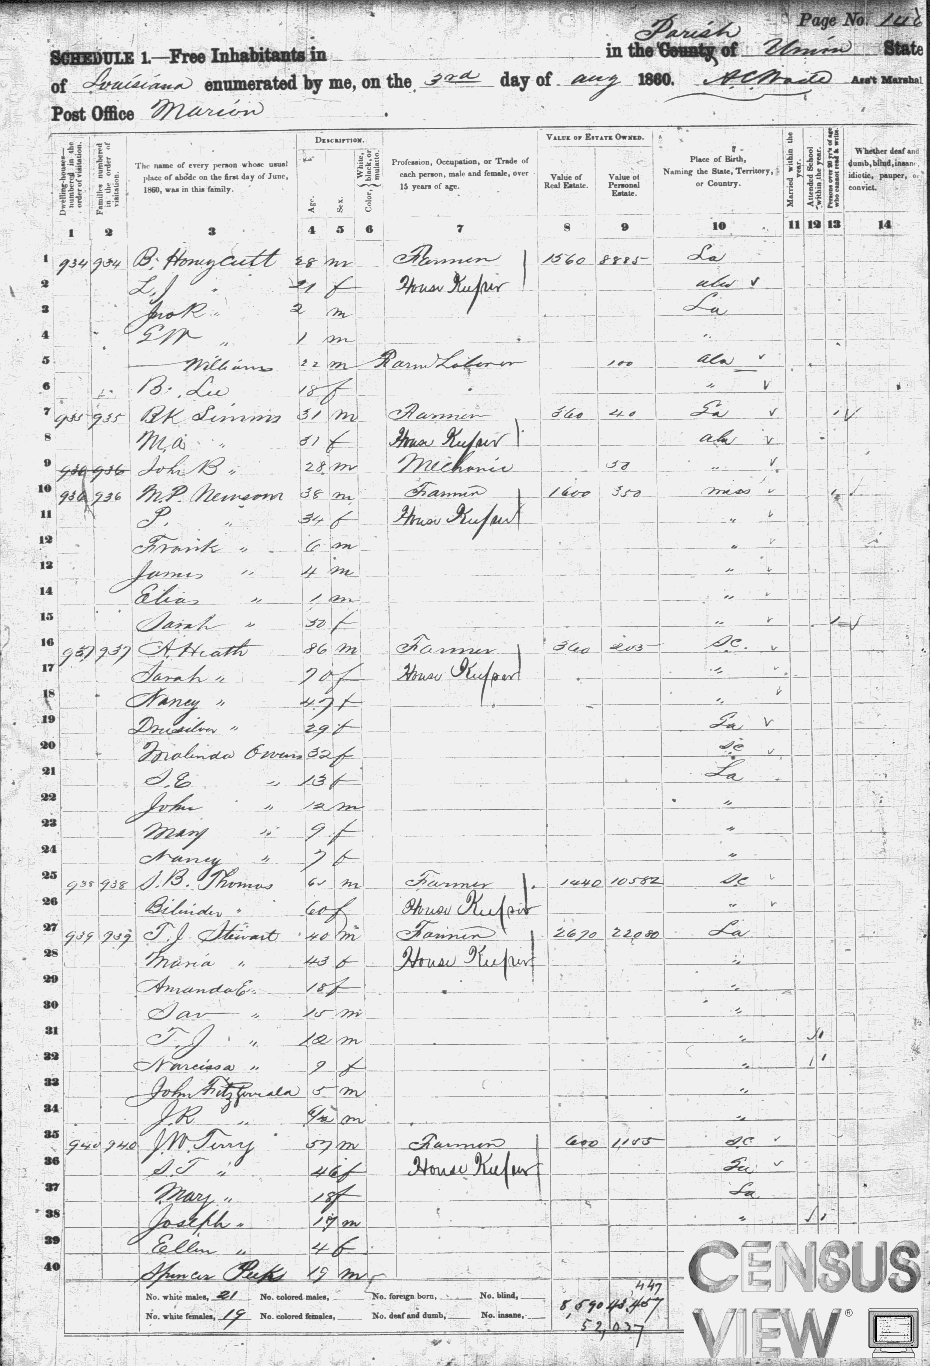 Page No. 146
SCHEDULE 1.—Free Inhabitants in Parish in the County of Union State
of Louisiana enumerated by me, on the 3rd day of aug 1860. Ass't Marshal
Post Office Marion
DESCRIPTION. VALUE OF ESTATE OWNED.
Dwelling-houses—numbered in the order of visitation. Families numbered in the order of visitation. The name of every person whose usual place of abode on the first day of June, 1860, was in this family. Age. Sex. Color, White, black, or mulatto. Profession, Occupation, or Trade of each person, male and female, over 15 years of age. Value of Real Estate. Value of Personal Estate. Place of Birth, Naming the State, Territory, or Country. Married within the year. Attended School within the year. Persons over 20 y'rs of age who cannot read & write. Whether deaf and dumb, blind, insane, idiotic, pauper, or convict.
1 2 3 4 5 6 7 8 9 10 11 12 13 14
1 934 934 B. Honeycutt 28 m Farmer 1560 8885 La
2 L. J " 21 f House Keeper ala
3 Jno R " 2 m La
4 G W " 1 m "
5 — Williams 22 m Farm Laborer 100 ala
6 B. Lee 18 f "
7 935 935 B K Simms 31 m Farmer 360 40 Ga
8 M. A " 31 f House Keeper ala
9 936 936 John B " 28 m Mechanic 50 "
10 936 936 M. P. Newsom 38 m Farmer 1600 350 miss
11 P. " 34 f House Keeper "
12 Frank " 6 m "
13 James " 4 m "
14 Elias " 1 m "
15 Sarah " 30 f "
16 937 937 A. Heath 86 m Farmer 360 203 SC.
17 Sarah " 70 f House Keeper "
18 Nancy " 47 f "
19 Drusilver " 29 f Ga
20 Malinda Owens 32 f SC
21 S. E " 13 f La
22 John " 12 m "
23 Mary " 9 f "
24 Nancy " 7 f "
25 938 938 S. B. Thomas m Farmer 1440 10582 SC
26 Bilinder " 60 f House Keeper "
27 939 939 T. J Stewart 40 m Farmer 2690 22080 La
28 Maria " 43 f House Keeper "
29 Amanda E. 18 f "
30 " 15 m "
31 T. J " 12 m "
32 Narcissa " 9 f "
33 John Fitzgerrala 5 m "
34 J. R " m "
35 940 940 J. W. Terry 57 m Farmer 600 1155 SC
36 S. T " 46 f House Keeper Ga
37 Mary " 18 f La
38 Joseph " 17 m "
39 Ellen " 4 f
40 Spencer Peeks 19 m
No. white males, 21 No. colored males, No. foreign born, No. blind,
No. white females, 19 No. colored females, No. deaf and dumb, No. insane,
,447
8,590 43,457
52,037
CENSUS
VIEW®